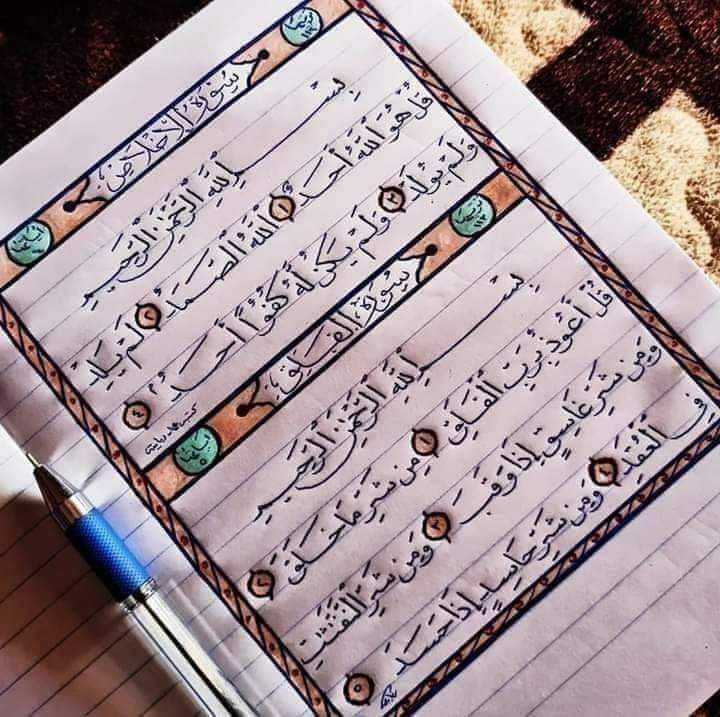 سُورَةُ الْإِخْلَاصِ
بِسْمِ اللَّهِ الرَّحْمَٰنِ الرَّحِيمِ
قُلْ هُوَ اللَّهُ أَحَدٌ ١ اللَّهُ الصَّمَدُ ٢ لَمْ يَلِدْ
وَلَمْ يُولَدْ ٣ وَلَمْ يَكُن لَّهُ كُفُوًا أَحَدٌ ٤
سُورَةُ الْفَلَقِ
بِسْمِ اللَّهِ الرَّحْمَٰنِ الرَّحِيمِ
قُلْ أَعُوذُ بِرَبِّ الْفَلَقِ ١ مِن شَرِّ مَا خَلَقَ ٢
وَمِن شَرِّ غَاسِقٍ إِذَا وَقَبَ ٣ وَمِن شَرِّ النَّفَّٰثَٰتِ
فِي الْعُقَدِ ٤ وَمِن شَرِّ حَاسِدٍ إِذَا حَسَدَ ٥